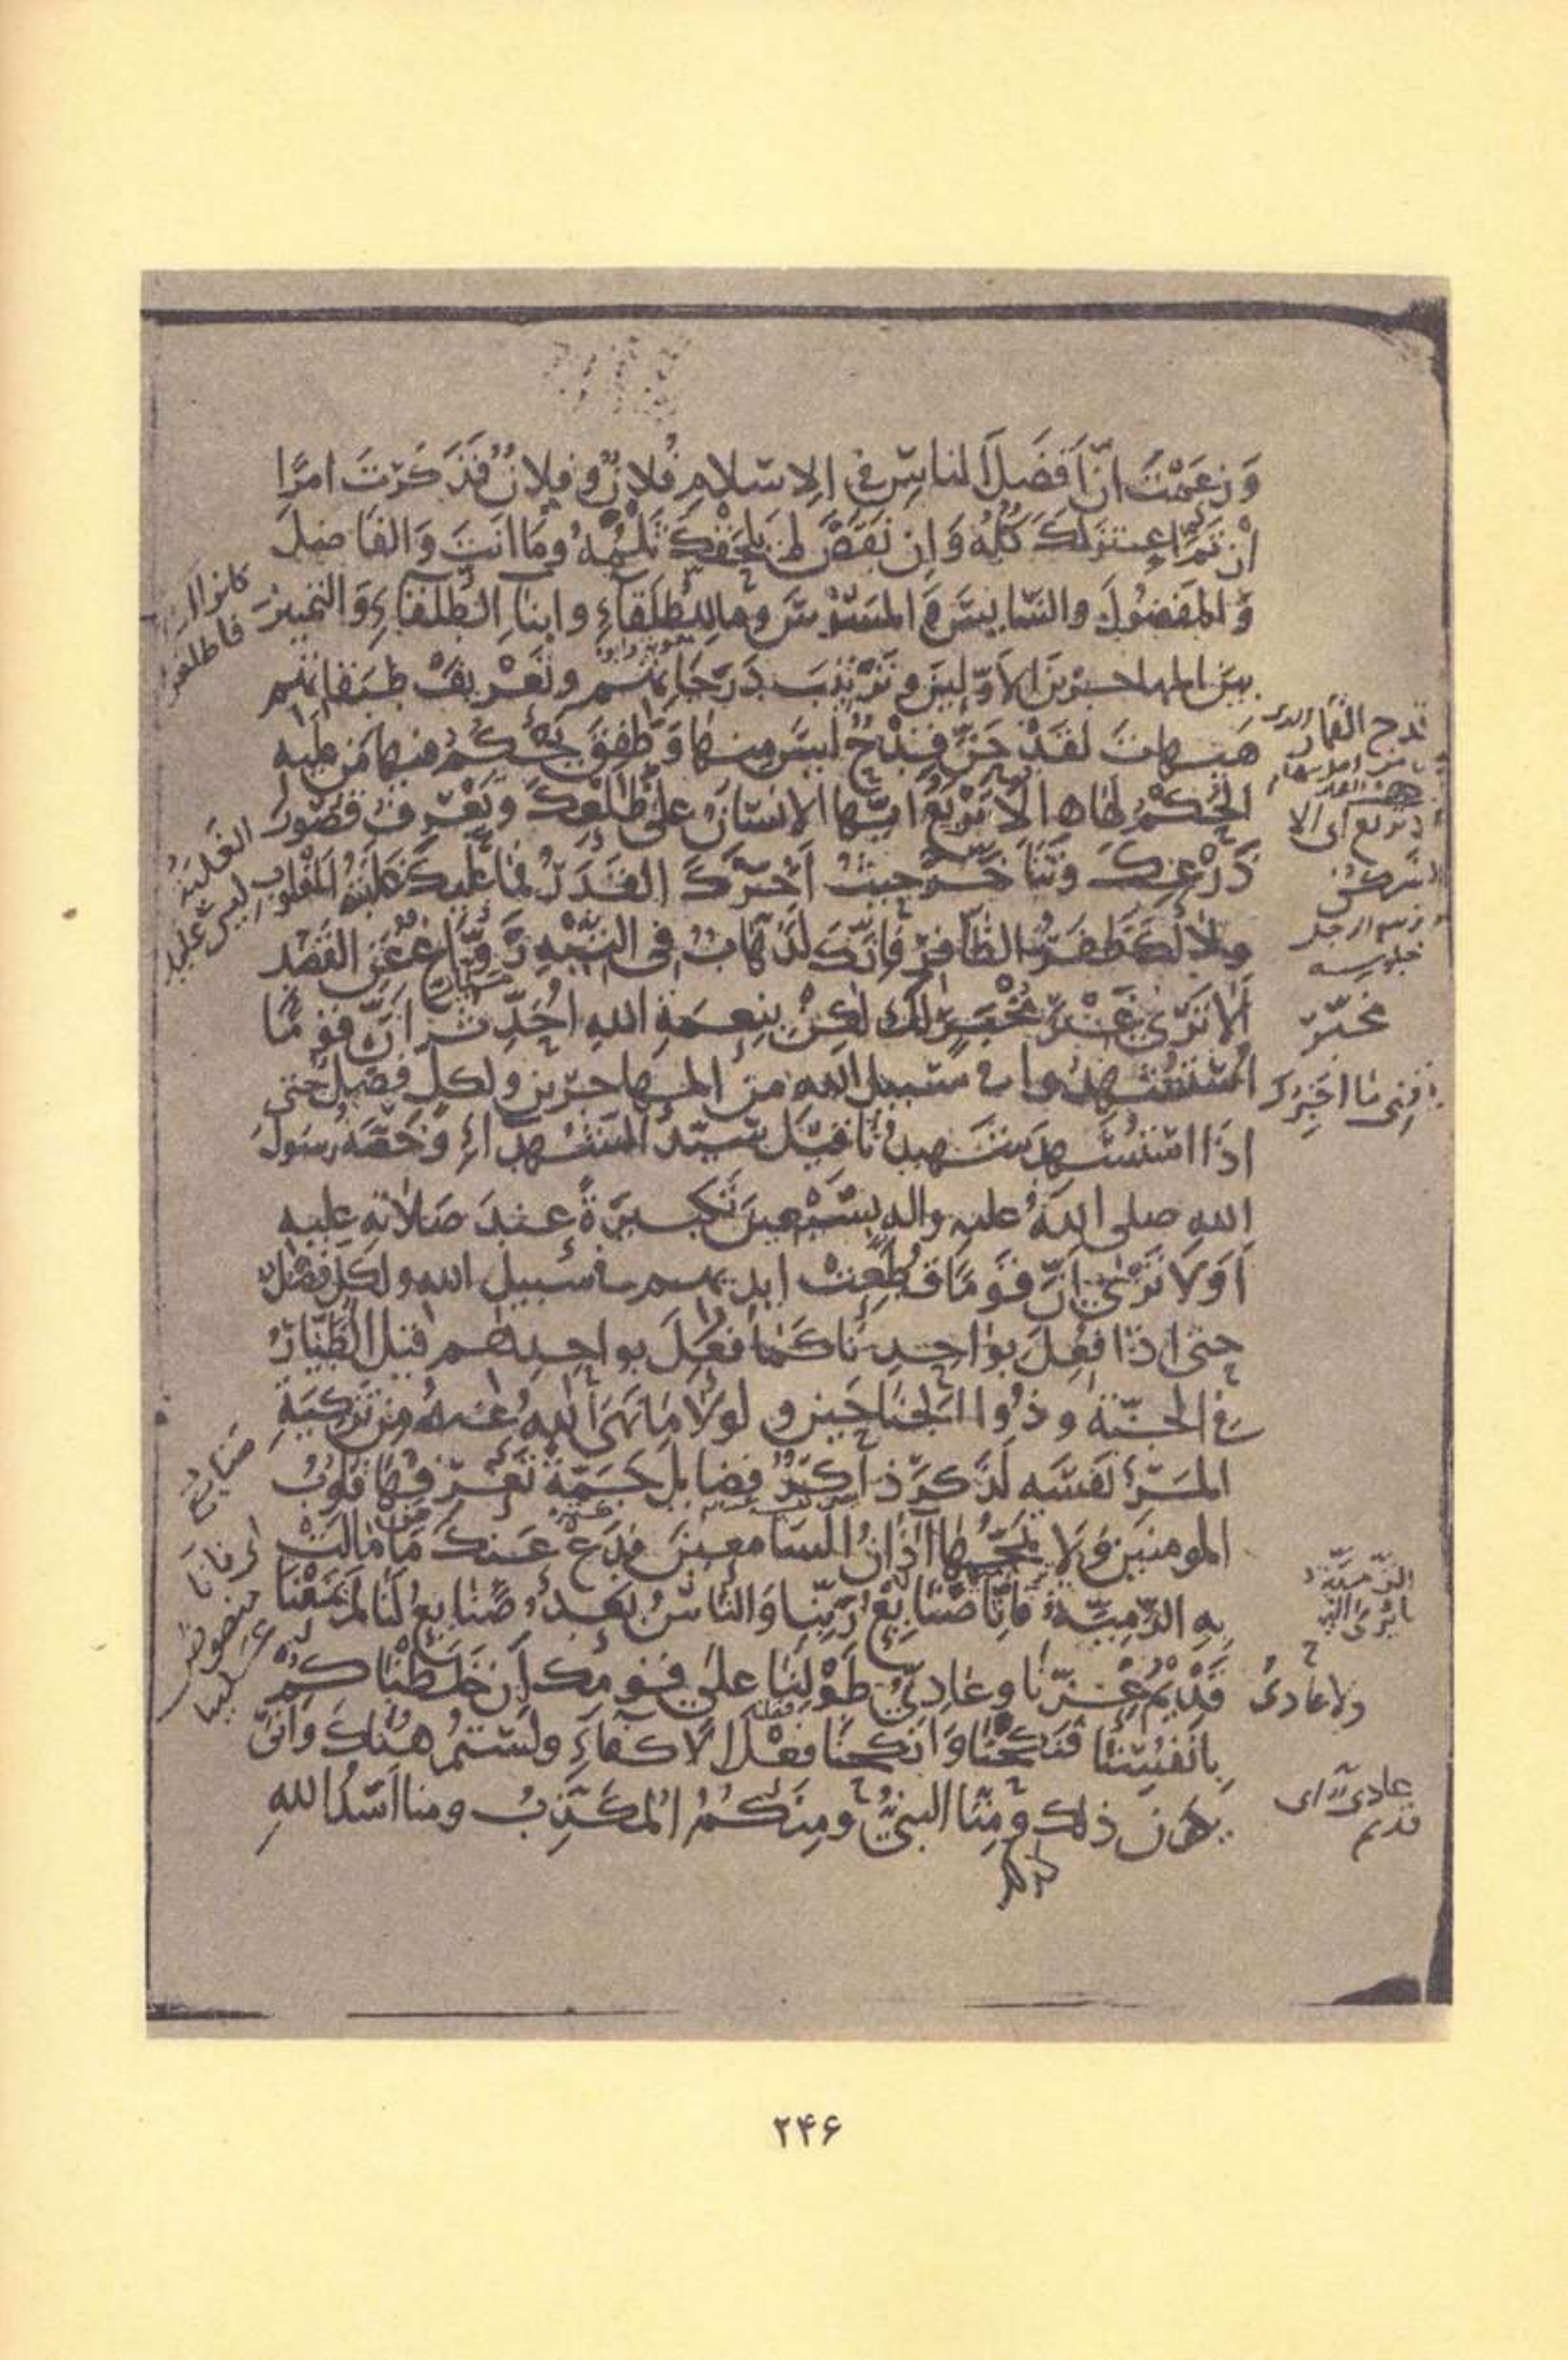 وَزَعَمْتَ انَّ اَفضَلَ الناسِ في الاِسلامِ فُلانٌ وفلانٌ فَذَكَرْتَ امرًا
اِنْ تَمَّ اعتزلكَ كُلُّهُ وَاِن نَقَصَ لم يَلحَقْكَ ثَلْمُهُ وما انتَ وَالفاضِلَ
وَالمفضُولَ والسّايسَ وَ المَسُوْسَ وما للطُلَقاءِ وابناءِ الطُلَقاءِ وَالتمييزَ
بينَ المهاجرينَ الاَوّلينَ وتَرْتيبَ دَرَجَاتِهم وتَعْريفَ طبَقاتِهم
هَيهاتَ لقَدْ حَنَّ قِدْحٌ ليسَ منها وَطَفِقَ يَحْكُمُ فيها مَن عليه
الحُكْمُ لها الا تَرْبَعُ ايّها الانسانُ على ظَلْعِكَ وتَعْرِفُ قُصُورَ
ذَرْعِكَ وتتأخّرُ حيثُ اَخّرَكَ القَدَرُ فما عليكَ غَلَبَةُ المغلوبِ
ولا لكَ ظَفَرُ الظّافِرِ فَاِنّكَ لَذَهّابٌ في التّيهِ رَوّاغٌ عَنِ القَصْدِ
اَلا تَرَى غَيْرَ مُخْبِرٍ لك لكِنْ بنِعمَةِ اللهِ اُحَدِّثُ انّ قومًا
استُشهِدُوا في سَبيلِ اللهِ منَ المهاجرين ولكلٍّ فضلٌ حتى
اذَا استُشهِدَ شهيدُنا قيلَ سيّدُ الشهداءِ وَخَصّهُ رسولُ
اللهِ صلى اللهُ عليه واله بسَبْعينَ تكبيرَةً عندَ صَلاتهِ عليه
اَوَلا تَرَى اَنّ قَومًا قُطِّعَتْ ايديهم في سَبيلِ الله ولكلٍّ فضلٌ
حتى اذا فُعِلَ بواحِدِنا كَما فُعِلَ بواحِدِهم قيلَ الطّيّارُ
في الجنّةِ وذُو الجَناحَينِ ولولا مَا نَهَى اللهُ عنهُ من تزكيَةِ
المرءِ نفسَه لَذَكَرَ ذاكِرٌ فضايلَ جَمّةً تَعْرِفُها قلوبُ
المومنينَ وَلا تَمُجُّها آذانُ السّامعينَ فَدَعْ عَنكَ مَن مالَتْ
بهِ الرّميّةُ فاِنّا صَنايِعُ رَبِّنا وَالنّاسُ بَعدُ صَنايعُ لَنا لم يَمْنَعْنا
قَديمُ عِزِّنا وعادِيُّ طَوْلِنا على قَومِك اَن خَلَطْناكُمْ
بِاَنفُسِنا فنكَحْنا وَانكَحنا فِعْلَ الاَكفاءِ ولستم هُناكَ وَانّى
يكون ذلك ومِنّا النبيُّ ومِنكُمُ المُكَذِّبُ ومنا اَسَدُ اللهِ
مُخبَر
ولا عادىُ
عادى اى
قديم
صنايع
۲۴۶